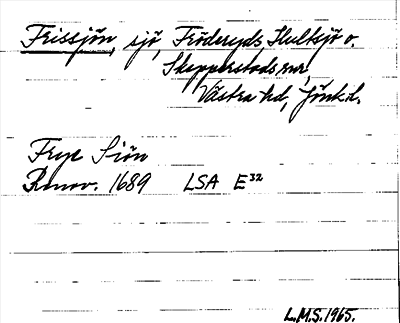 Frissjön, sjö, Fröderyds, Hultsjö o.
Skepperstads snr,
Västra hd, Jönk. l.
Frye Siön
Renov. 1689 LSA E³²
L.M.S. 1965.